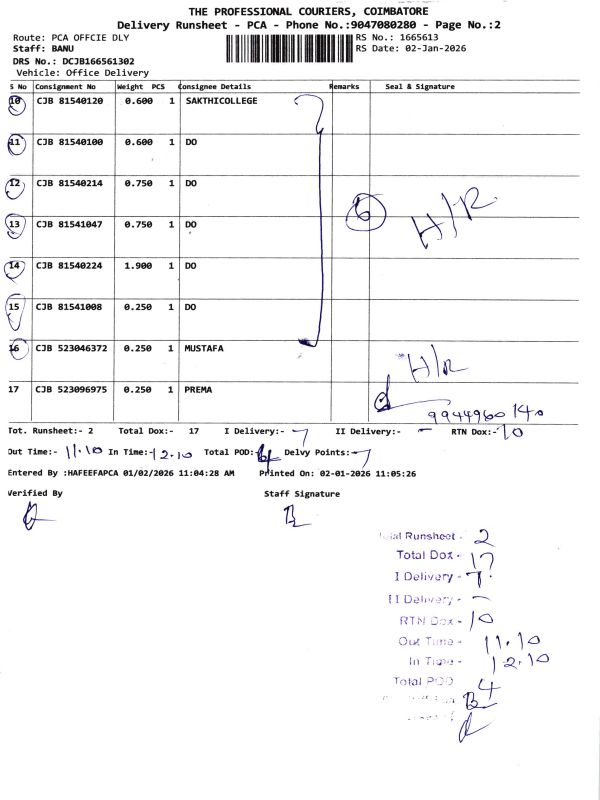 THE PROFESSIONAL COURIERS, COIMBATORE
Delivery Runsheet - PCA - Phone No.:9047080280 - Page No.:2
Route: PCA OFFCIE DLY
RS No.: 1665613
Staff: BANU
RS Date: 02-Jan-2026
DRS No.: DCJB166561302
Vehicle: Office Delivery
S No Consignment No Weight PCS Consignee Details Remarks Seal & Signature
10 CJB 81540120 0.600 1 SAKTHICOLLEGE
11 CJB 81540100 0.600 1 DO
12 CJB 81540214 0.750 1 DO
6 H/R
13 CJB 81541047 0.750 1 DO
14 CJB 81540224 1.900 1 DO
15 CJB 81541008 0.250 1 DO
16 CJB 523046372 0.250 1 MUSTAFA
H/R
17 CJB 523096975 0.250 1 PREMA
9944960140
Tot. Runsheet:- 2 Total Dox:- 17 I Delivery:- 7 II Delivery:- - RTN Dox:- 10
Out Time:- 11.10 In Time:- 12.10 Total POD:- 4 Delvy Points:- 7
Entered By :HAFEEFAPCA 01/02/2026 11:04:28 AM Printed On: 02-01-2026 11:05:26
Verified By Staff Signature
Total Runsheet - 2
Total Dox - 17
I Delivery - 7.
II Delivery - -
RTN Dox - 10
Out Time - 11.10
In Time - 12.10
Total POD 4